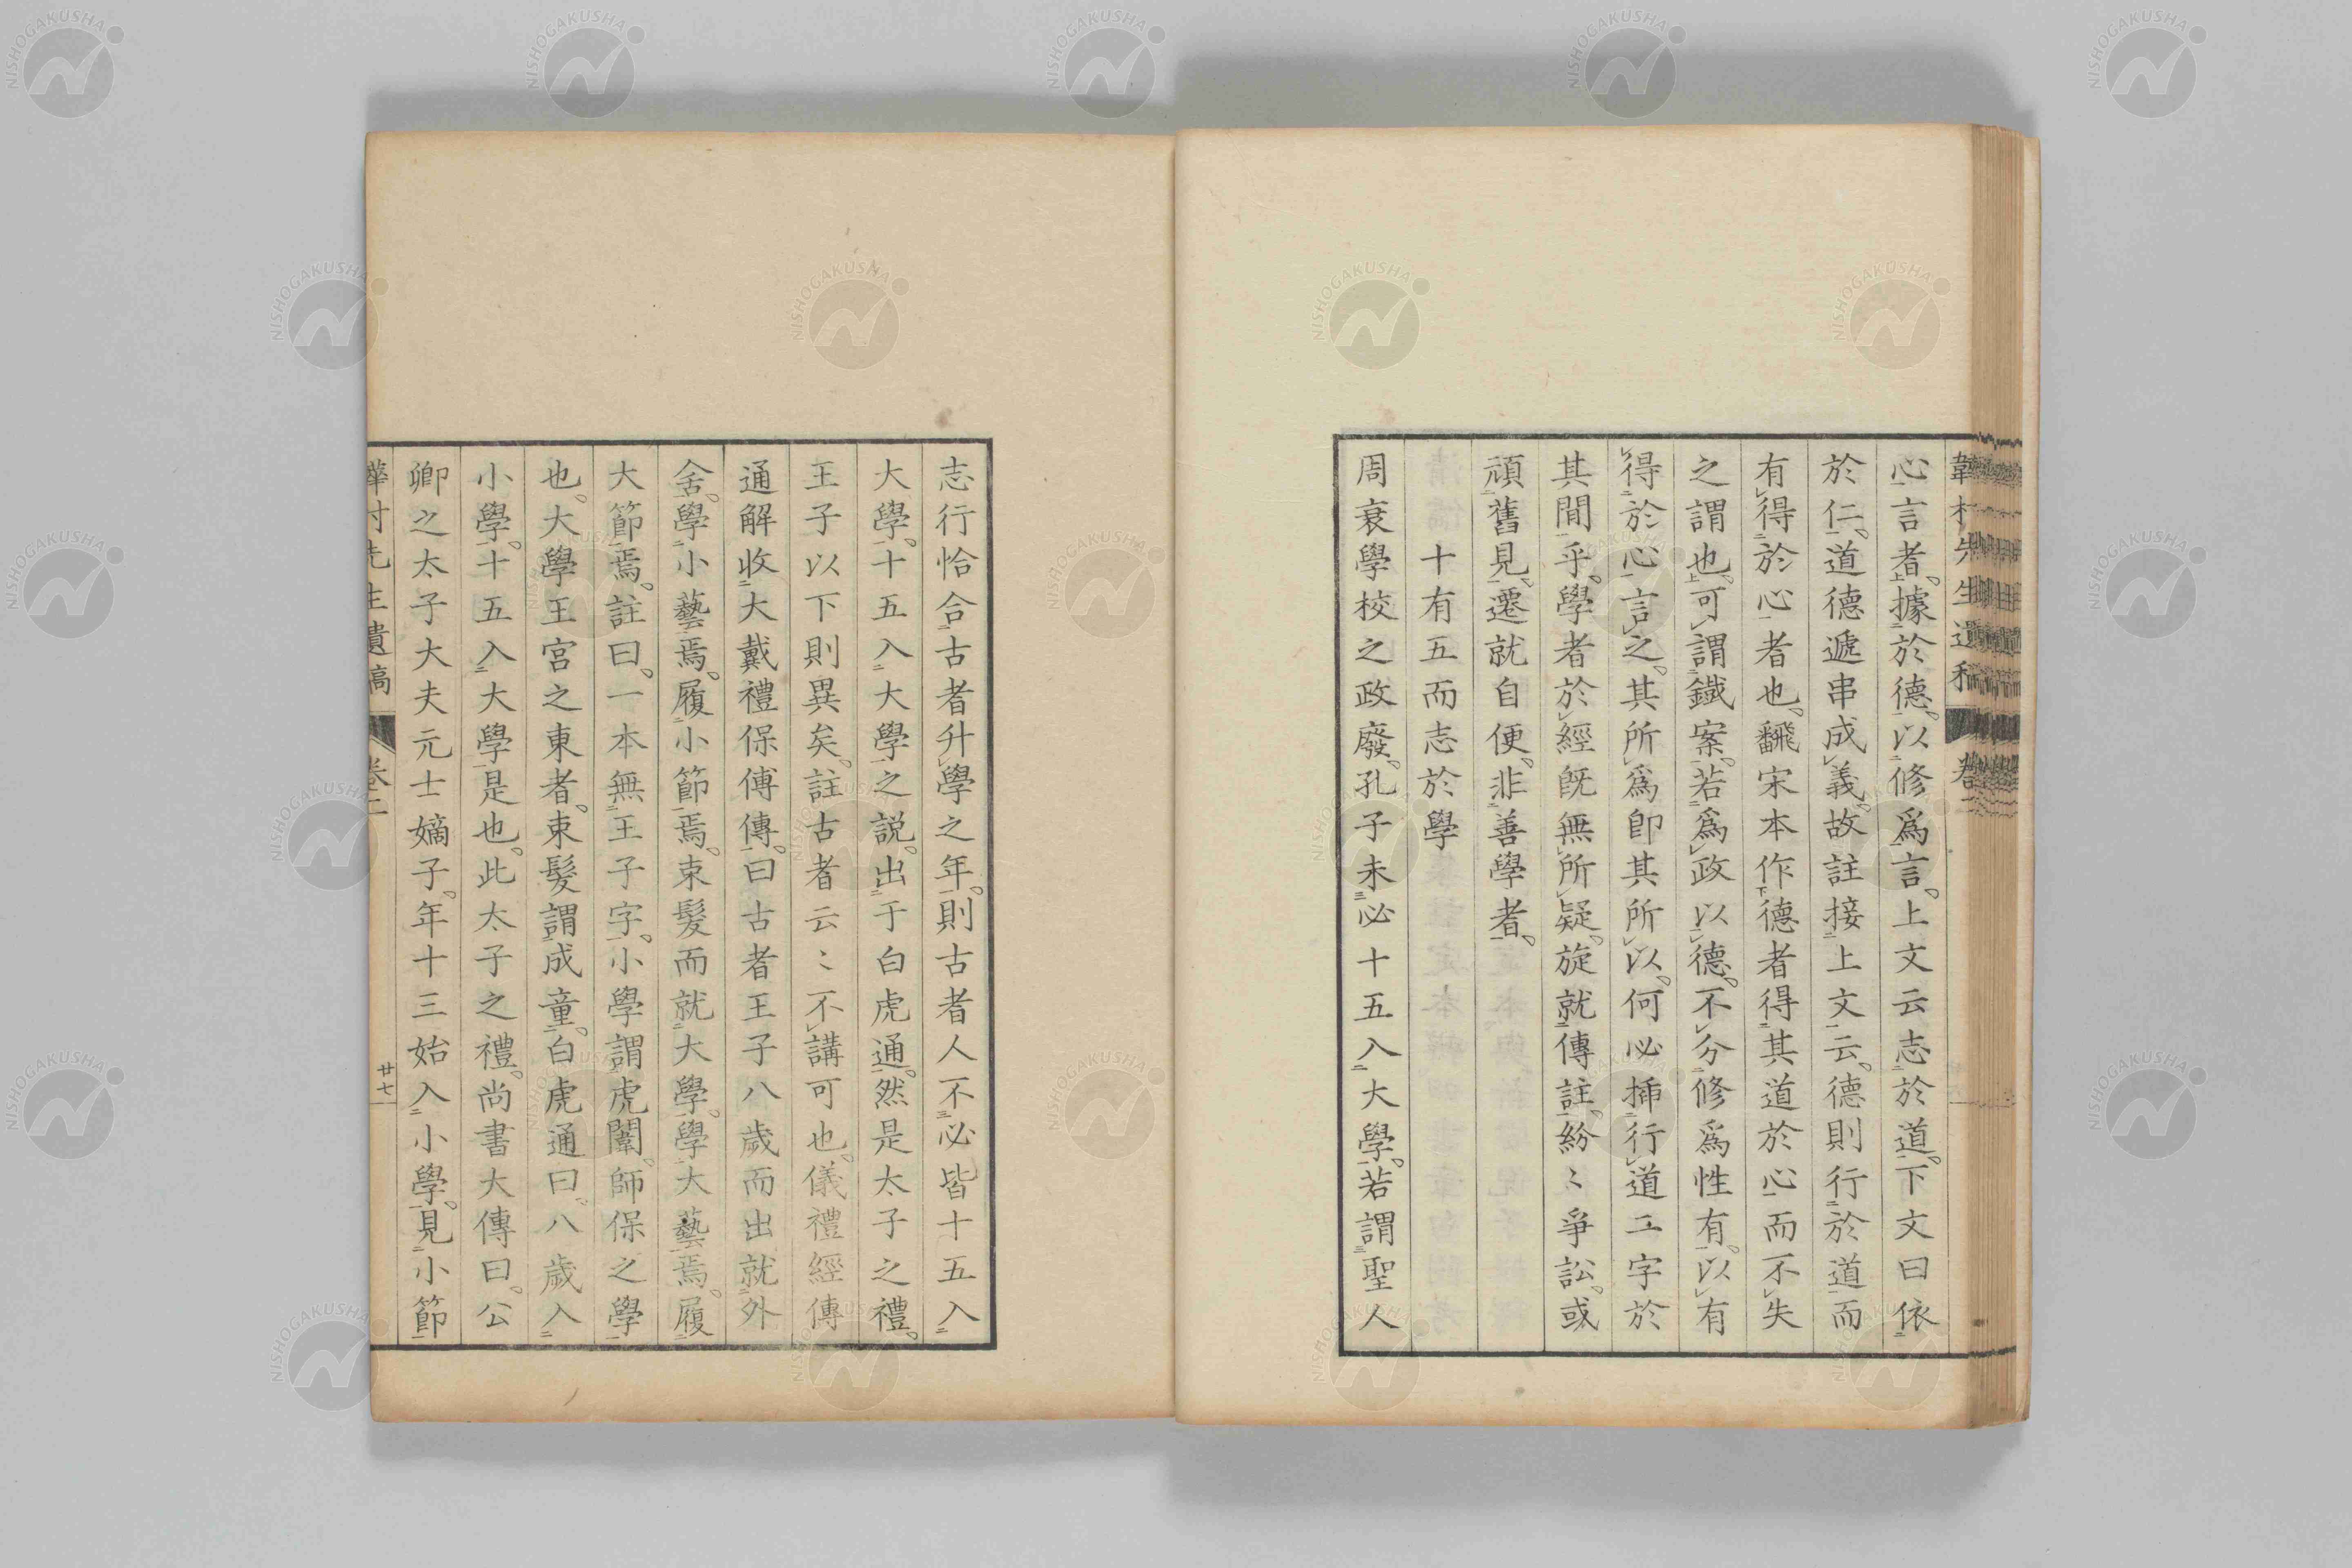 韡村先生遺稿 卷二
心言者。據於德。以修爲言。上文云志於道。下文曰依
於仁。道德遞串成義。故註接上文云。德則行於道而
有得於心者也。飜宋本作德者得其道於心而不失
之謂也。可謂鐵案。若爲政以德。不分修爲性有。以有
得於心言之。其所爲卽其所以。何必揷行道二字於
其間乎。學者於經旣無所疑。旋就傳註。紛〻爭訟。或
頑舊見。遷就自便。非善學者。
十有五而志於學
周衰學校之政廢。孔子未必十五入大學。若謂聖人
志行恰合古者升學之年。則古者人不必皆十五入
大學。十五入大學之説。出于白虎通。然是太子之禮。
王子以下則異矣。註古者云〻不講可也。儀禮經傳
通解收大戴禮保傅傳。曰古者王子八歲而出就外
舍。學小藝焉。履小節焉。束髮而就大學。學大藝焉。履
大節焉。註曰。一本無王子字。小學謂虎闈。師保之學
也。大學王宮之東者。束髮謂成童。白虎通曰。八歲入
小學。十五入大學是也。此太子之禮。尚書大傳曰。公
卿之太子大夫元士嫡子。年十三始入小學。見小節
韡村先生遺稿 卷二 廿七
NISHOGAKUSHA